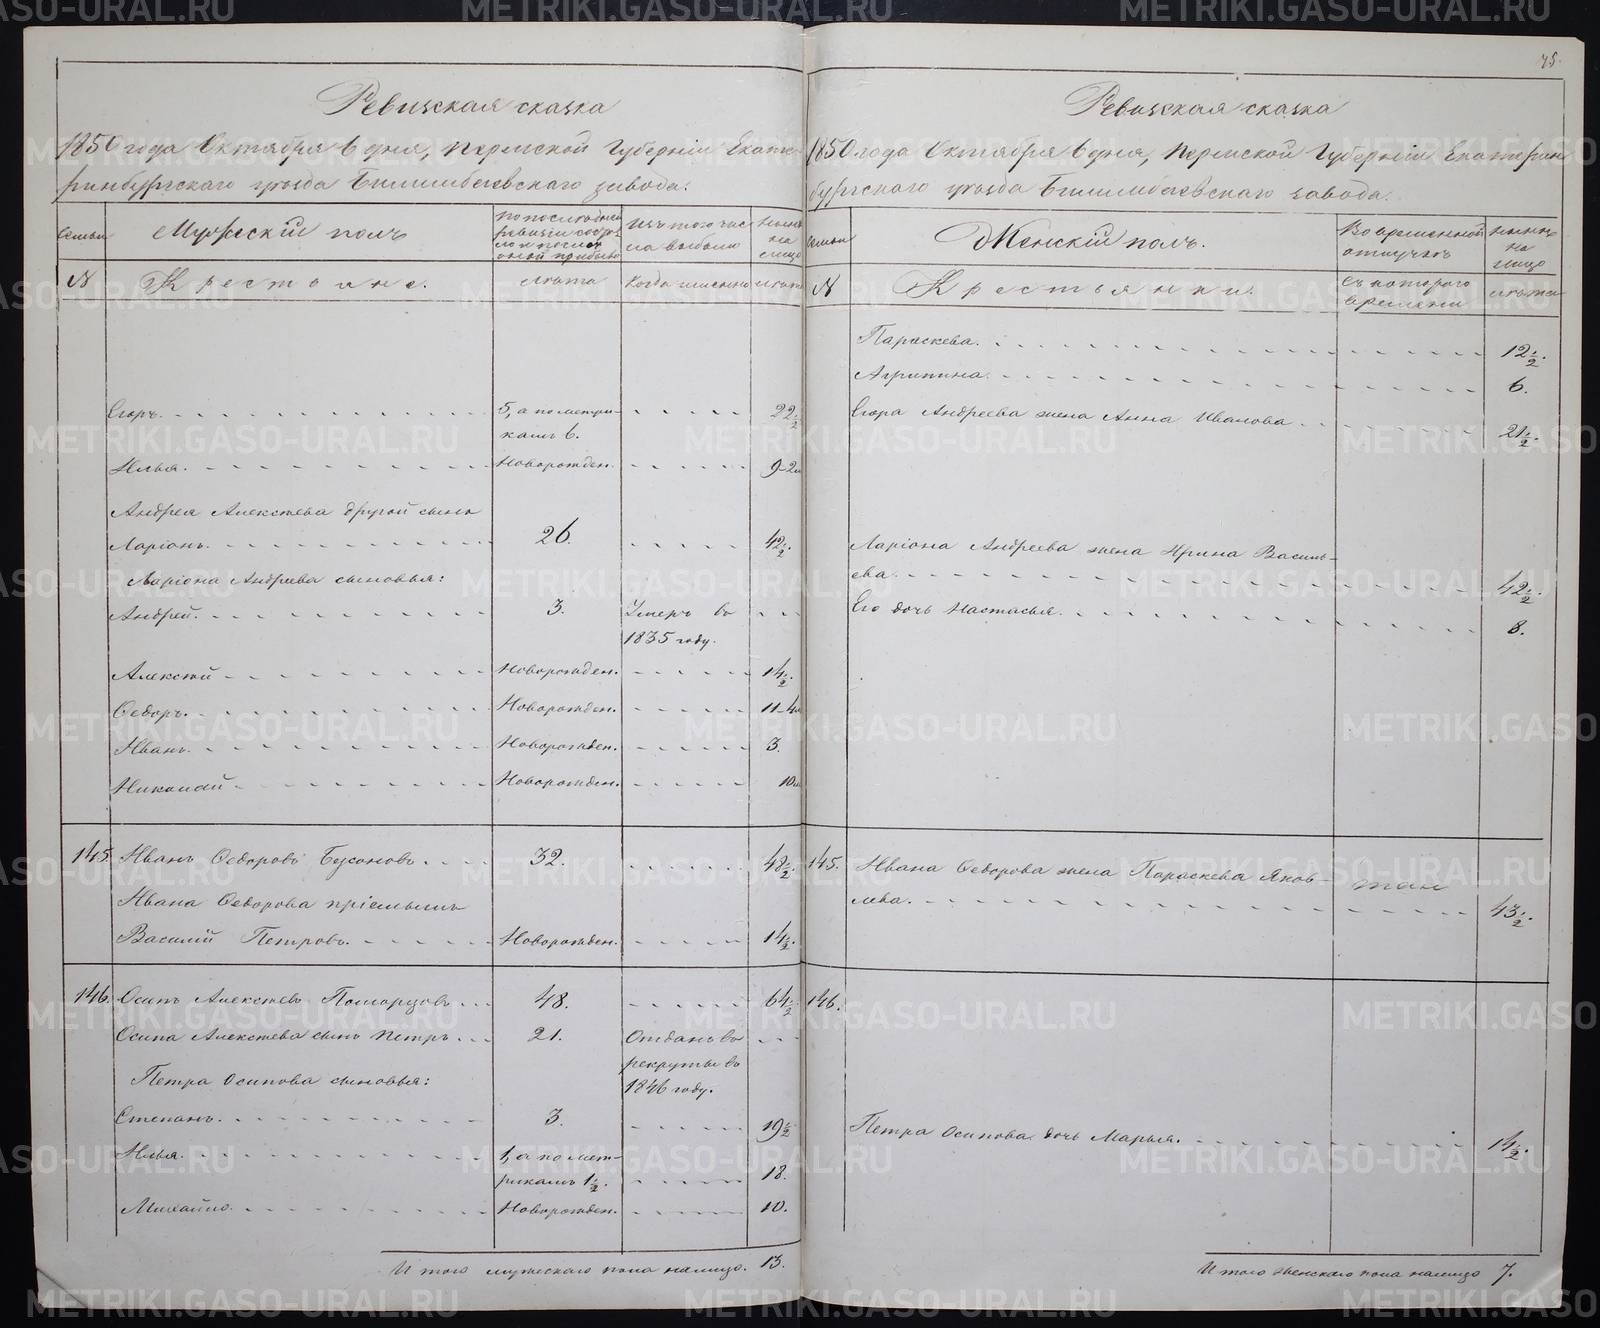 75.
Ревизская сказка
1850 года Октября 6 дня, Пермской Губерніи Екате-
ринбургскаго уѣзда Билимбаевскаго завода.
Семьи
Мужескій полъ
По послѣдней ревизіи состояло и послѣ оной прибыло
Изъ того числа выбыло
Нынѣ на лицо
№
Крестьяне.
лѣта
Когда именно
лѣта
Егоръ.
5, а по метри-
камъ 6.
22 1/2
Илья.
Новорожден.
9-2м
Андрея Алексѣева другой сынъ
Ларіонъ.
26.
42 1/2.
Ларіона Андреева сыновья:
Андрей.
3.
Умеръ въ
1835 году.
Алексѣй
Новорожден.
14 1/2.
Ѳедоръ.
Новорожден.
11-4м
Иванъ.
Новорожден.
3.
Николай
Новорожден.
10м
145.
Иванъ Ѳедоровъ
32.
48 1/2.
Ивана Ѳедорова пріемышъ
Василій Петровъ.
Новорожден.
14 1/2.
146.
Осипъ Алексѣевъ
48.
64 1/2
Осипа Алексѣева сынъ Петръ
21.
Отданъ въ
рекруты въ
1846 году.
Петра Осипова сыновья:
Степанъ.
3.
19 1/2
Илья.
1, а по мет-
рикамъ 1 1/2.
18.
Михайло.
Новорожден.
10.
Итого мужескаго пола налицо. 13.
Ревизская сказка
1850 года Октября 6 дня, Пермской Губерніи Екатерин-
бургскаго уѣзда Билимбаевскаго завода.
Семьи
Женскій полъ.
Во временной
отлучкѣ
Нынѣ
на
лицо
№
Крестьянки.
Съ котораго
времени
лѣта
Параскева.
12 1/2.
Агрипина.
6.
Егора Андреева жена Анна Иванова
21 1/2.
Ларіона Андреева жена Ирина Василь-
ева.
42 1/2.
Его дочь Настасья.
8.
145.
Ивана Ѳедорова жена Параскева Яков-
лева.
43 1/2.
146.
Петра Осипова дочь Марья.
14 1/2.
Итого женскаго пола налицо 7.
METRIKI.GASO-URAL.RU